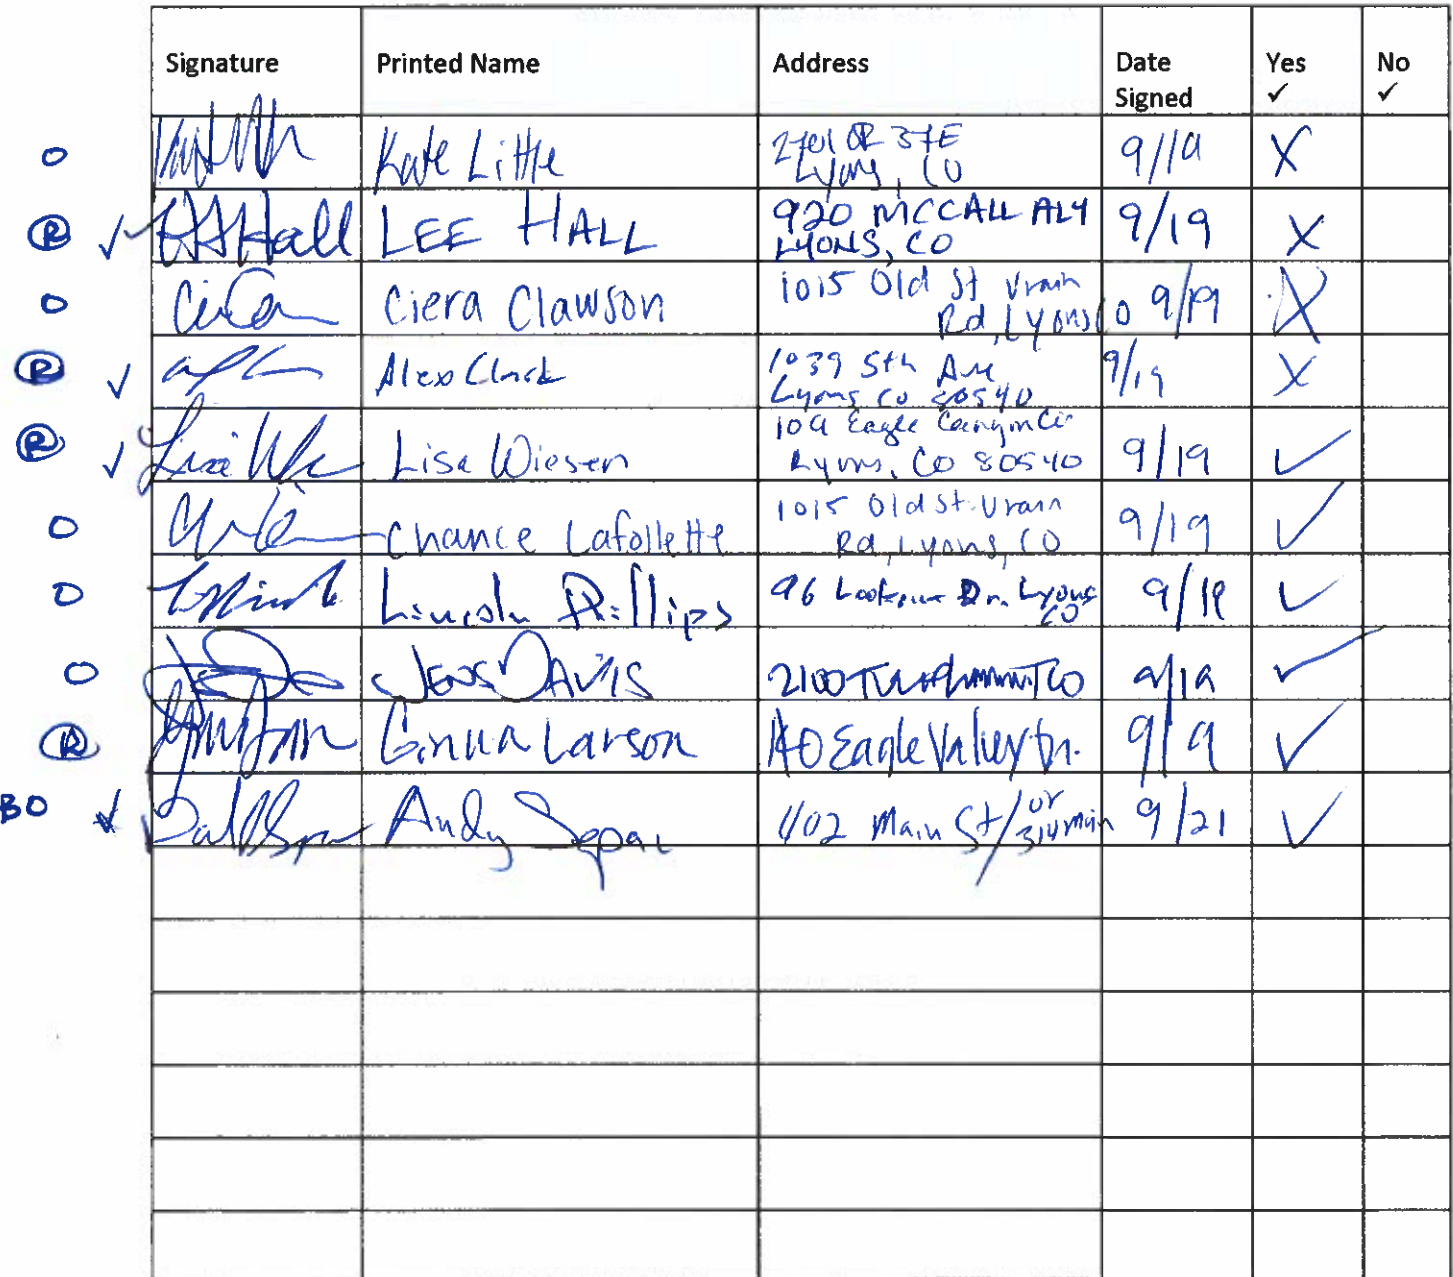 Signature Printed Name Address Date Signed Yes ✓ No ✓
O Kate Little 2701 CR 37E
Lyons, CO 9/19 X
R ✓ Hall LEE HALL 920 MCCALL ALY
LYONS, CO 9/19 X
O Ciera Clawson 1015 Old St Vrain
Rd, Lyons CO 9/19 X
R ✓ Alex Clark 1039 5th Ave
Lyons CO 80540 9/19 X
R ✓ Lisa Wiesen 109 Eagle Canyon Cir
Lyons, CO 80540 9/19 ✓
O Chance Lafollette 1015 Old St. Vrain
Rd, Lyons, CO 9/19 ✓
O Lincoln Phillips 96 Lookout Dr. Lyons
CO 9/19 ✓
O JENS DAVIS 2100 CO 9/19 ✓
R Larson Eagle Valley Dr. 9/19 ✓
BO ✓ Andy Sepac 402 Main St/or
314 main 9/21 ✓